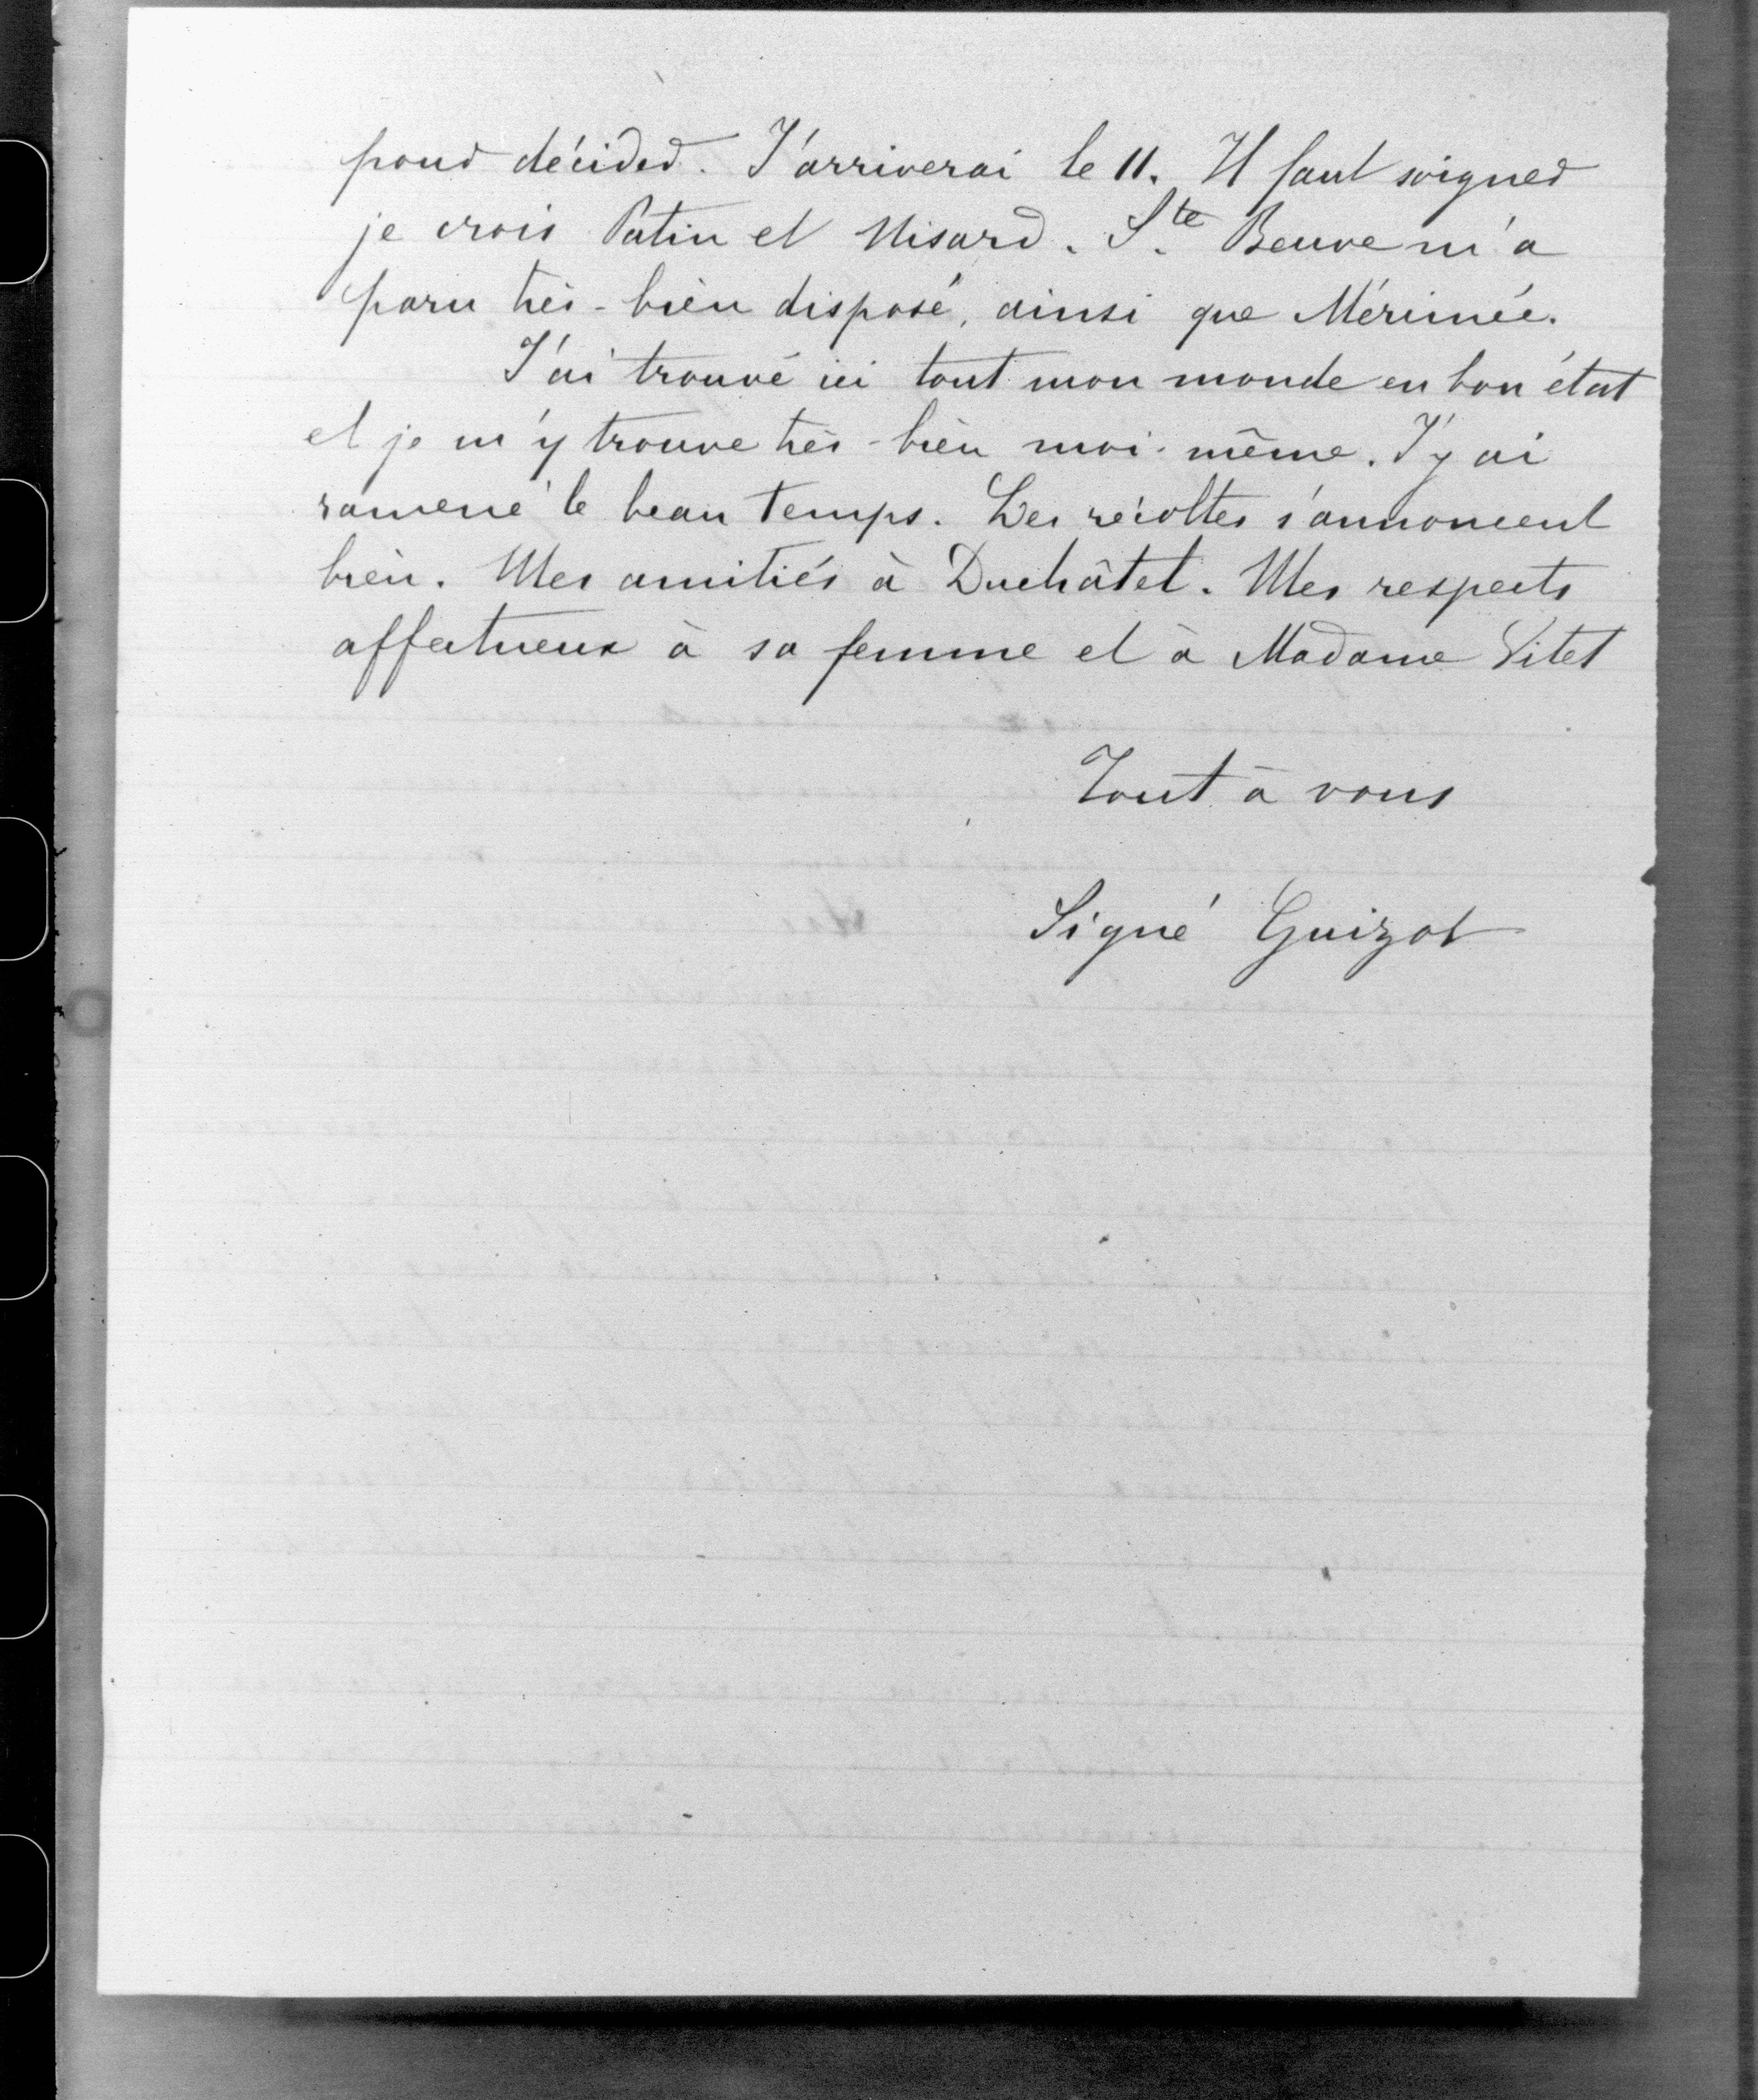 pour décider. J'arriverai le 11. Il faut soigner
je crois Patin et Nisard. Ste Beuve m'a
paru très-bien disposé, ainsi que Mérimée.
J'ai trouvé ici tout mon monde en bon état
et je m'y trouve très-bien moi-même. J'y ai
ramené le beau temps. Les récoltes s'annoncent
bien. Mes amitiés à Duchâtel. Mes respects
affectueux à sa femme et à Madame Vitet
Tout à vous
Signé Guizot